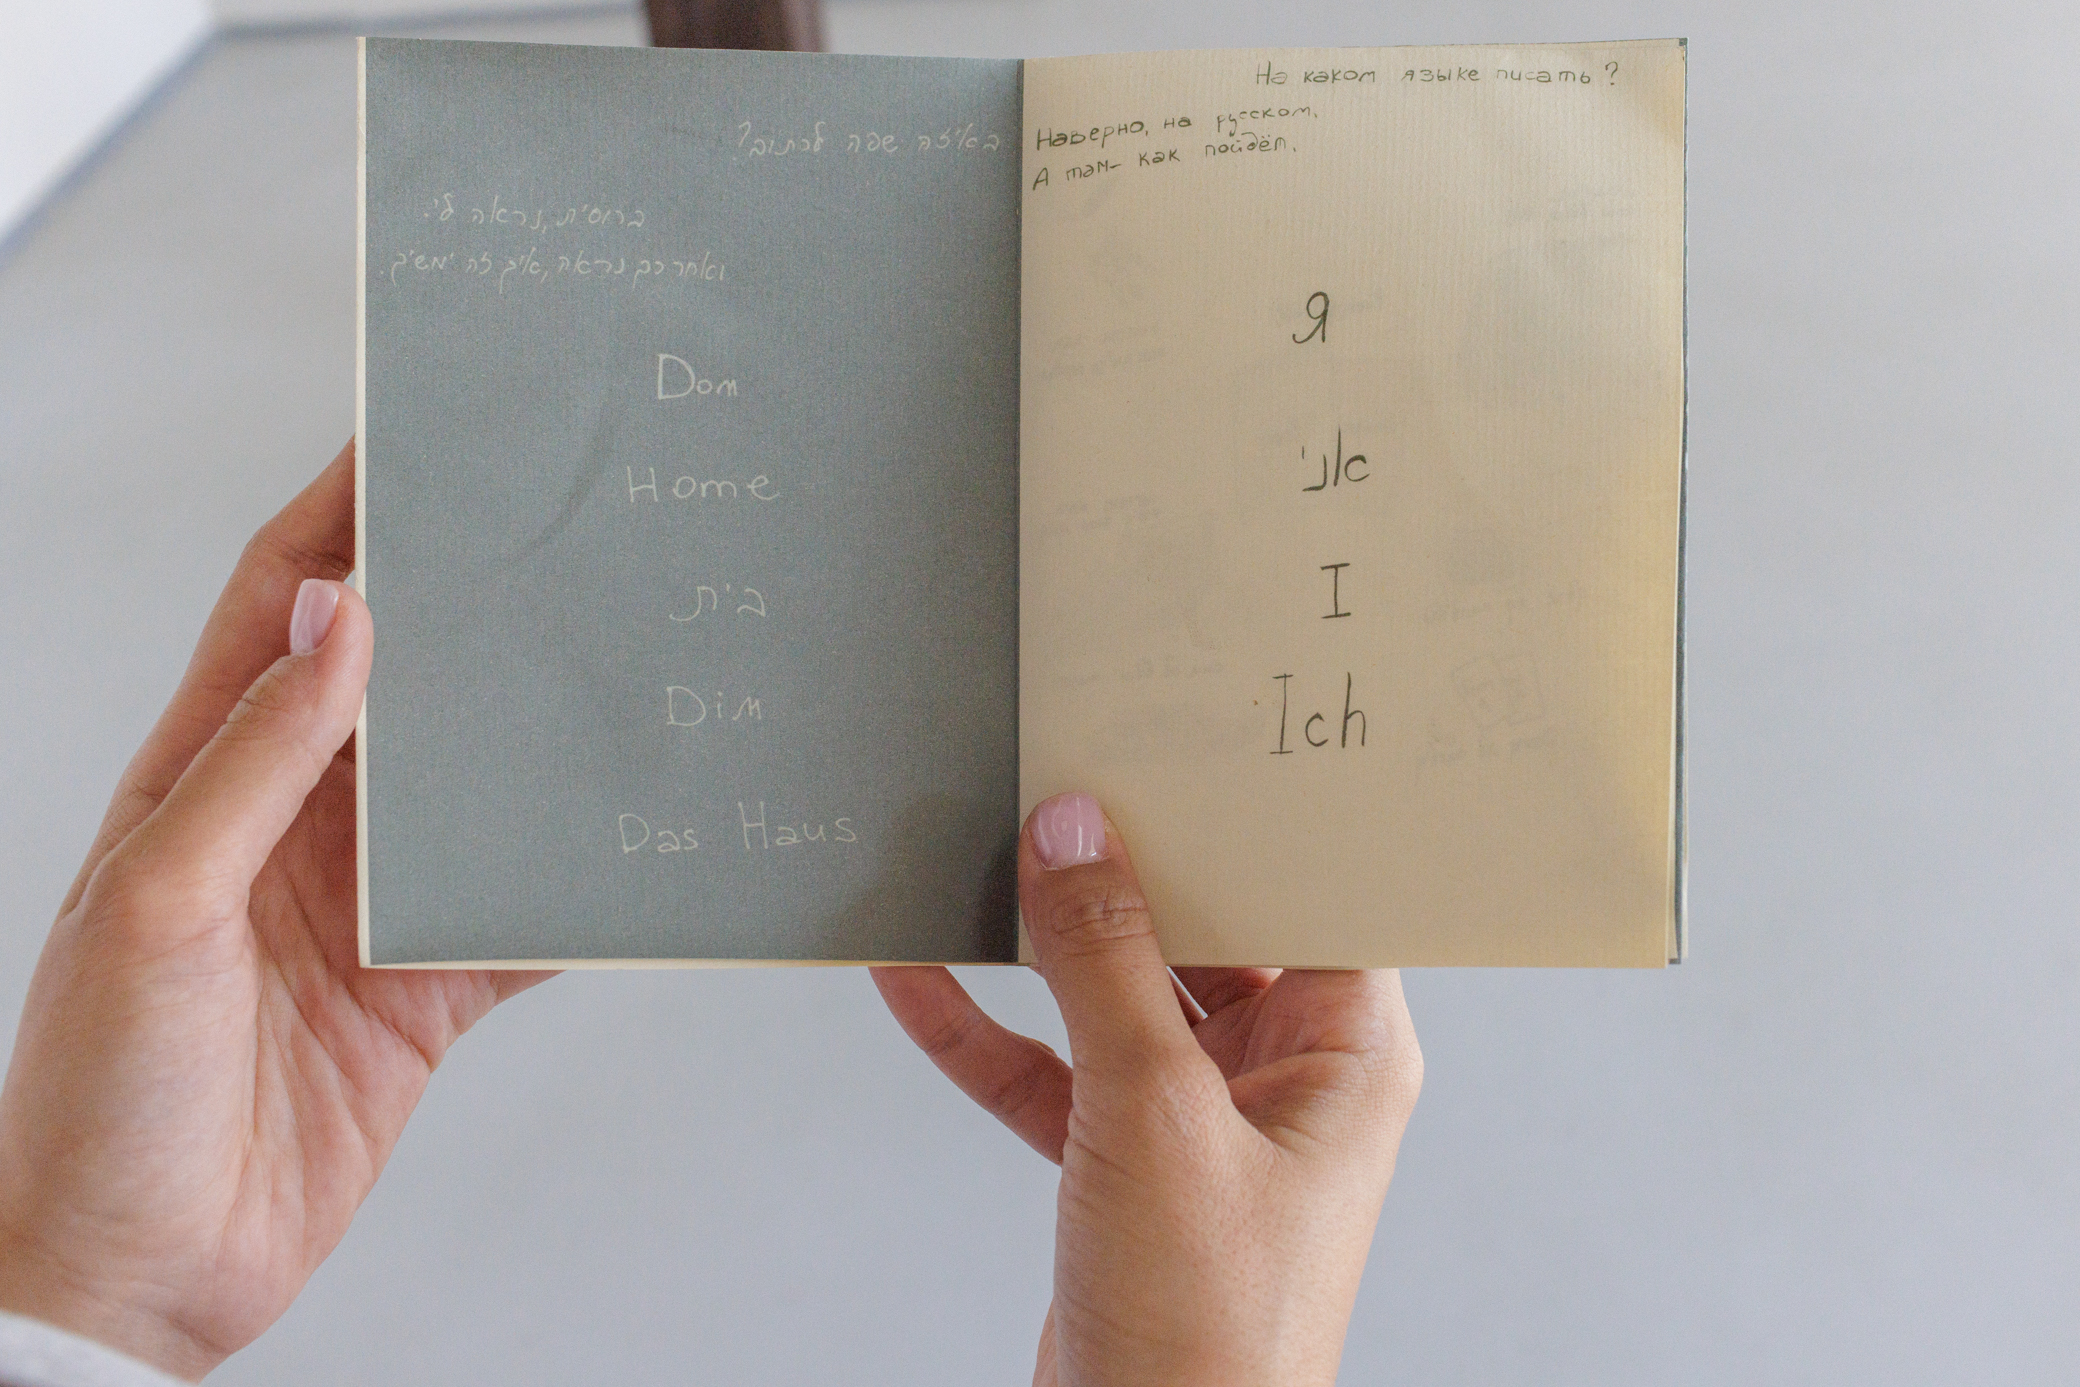 באיזה שפה לכתוב?
ברוסית, נראה לי.
ואחר כך נראה, איך זה ימשיך.
Dom
Home
בית
Dim
Das Haus
На каком языке писать?
Наверно, на русском.
А там- как пойдёт.
Я
אני
I
Ich